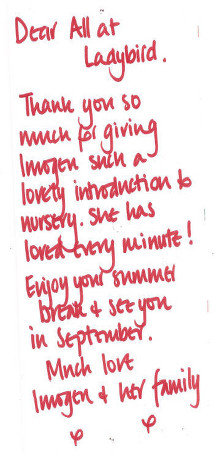 Dear All at
Ladybird.
Thank you so
much for giving
Imogen such a
lovely introduction to
nursery. She has
loved every minute!
Enjoy your summer
break & see you
in September.
Much love
Imogen & her family